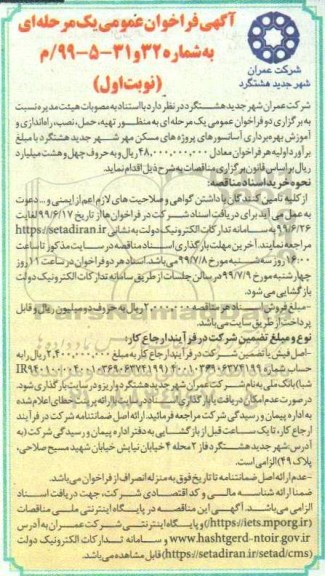 آگهی فراخوان عمومی یک مرحله‌ای
به شماره ۳۲و۳۱-۵-۹۹/م
(نوبت اول)
شرکت عمران
شهر جدید هشتگرد
شرکت عمران شهر جدید هشتگرد در نظر دارد با استناد به مصوبات هیئت مدیره نسبت
به برگزاری دو فراخوان عمومی یک مرحله ای به منظور تهیه، حمل، نصب، راه اندازی و
آموزش بهره برداری آسانسورهای پروژه های مسکن مهر شهر جدید هشتگرد با مبلغ
برآورد اولیه هر فراخوان معادل ۴۸,۰۰۰,۰۰۰,۰۰۰ ریال و به حروف چهل و هشت میلیارد
ریال بر اساس قانون برگزاری مناقصات به شرح ذیل اقدام نماید.
نحوه خرید اسناد مناقصه:
از کلیه تامین کنندگان با داشتن گواهی و صلاحیت های لازم اعم از ایمنی و... دعوت
به عمل می آید برای دریافت اسناد شرکت در فراخوان ها از تاریخ ۹۹/۶/۱۷ لغایت
۹۹/۶/۲۶ به سامانه تدارکات الکترونیک دولت به نشانی https://setadiran.ir
مراجعه نمایند. آخرین مهلت بارگذاری اسناد مناقصه در سایت مذکور تا ساعت
۱۶:۰۰ روز سه شنبه مورخ ۹۹/۷/۸ می باشد. اسناد هر دو فراخوان در ساعت ۱۱ روز
چهارشنبه مورخ ۹۹/۷/۹ در سالن جلسات از طریق سامانه تدارکات الکترونیک دولت
بازگشایی می شود.
-مبلغ فروش اسناد هر مناقصه ۲,۰۰۰,۰۰۰ ریال به حروف دو میلیون ریال و قابل
پرداخت از طریق سایت می باشد.
نوع و مبلغ تضمین شرکت در فرآیند ارجاع کار:
-اصل فیش یا تضمین شرکت در فرآیند ارجاع کار به مبلغ ۲,۴۰۰,۰۰۰,۰۰۰ ریال را به
حساب شماره
شبا) بانک ملی به نام شرکت عمران شهر جدید هشتگرد واریز و در سایت بارگذاری شود.
در صورت عدم امکان دریافت یا بارگذاری اسناد در سامانه با ارائه پرینت خطای اعلام شده
به اداره پیمان و رسیدگی شرکت مراجعه فرمائید. ارائه اصل ضمانتنامه شرکت در فرآیند
ارجاع کار، تا یک ساعت قبل از بازگشایی به دفتر اداره پیمان و رسیدگی شرکت (به
آدرس شهر جدید هشتگرد فاز ۲ محله ۴ خیابان نیایش خیابان شهید مسیح صلاحی،
پلاک ۴۹) الزامی است.
-عدم ارائه اصل ضمانتنامه تا تاریخ فوق به منزله انصراف از فراخوان می باشد.
ضمنا ارائه شناسه مالی و کد اقتصادی شرکت، جهت دریافت اسناد
الزامی می باشد. آگهی این مناقصه در پایگاه اینترنتی ملی مناقصات
(https://iets.mporg.ir) و پایگاه اینترنتی شرکت عمران به آدرس
www.hashtgerd-ntoir.gov.ir و سامانه تدارکات الکترونیک دولت
(https://setadiran.ir/setad/cms) قابل مشاهده می باشد.